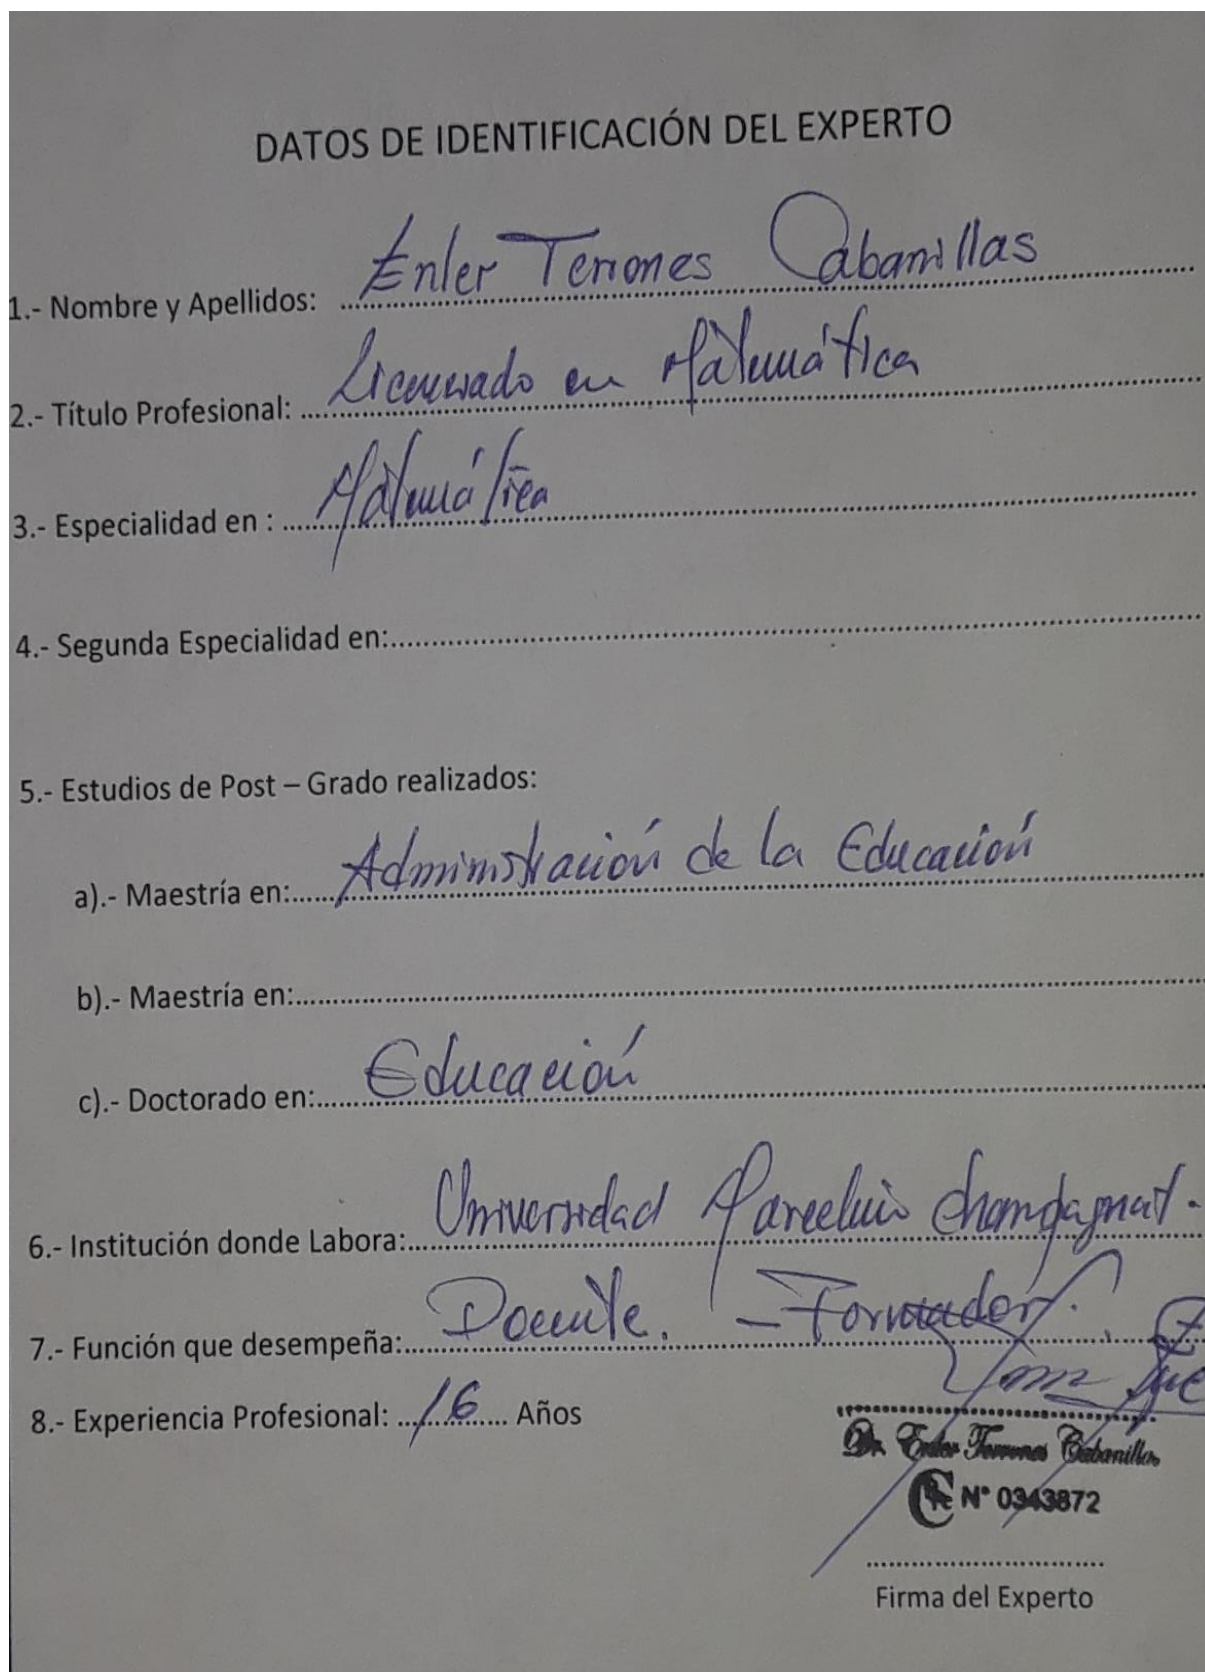 DATOS DE IDENTIFICACIÓN DEL EXPERTO
1.- Nombre y Apellidos: Enler Terrones Cabanillas
2.- Título Profesional: Licenciado en Matemática
3.- Especialidad en : Matemática
4.- Segunda Especialidad en:
5.- Estudios de Post – Grado realizados:
a).- Maestría en: Administración de la Educación
b).- Maestría en:
c).- Doctorado en: Educación
6.- Institución donde Labora: Universidad Marcelino Champagnat.
7.- Función que desempeña: Docente. - Formador.
8.- Experiencia Profesional: 16 Años
Dr. Enler Terrones Cabanillas
N° 0343872
Firma del Experto